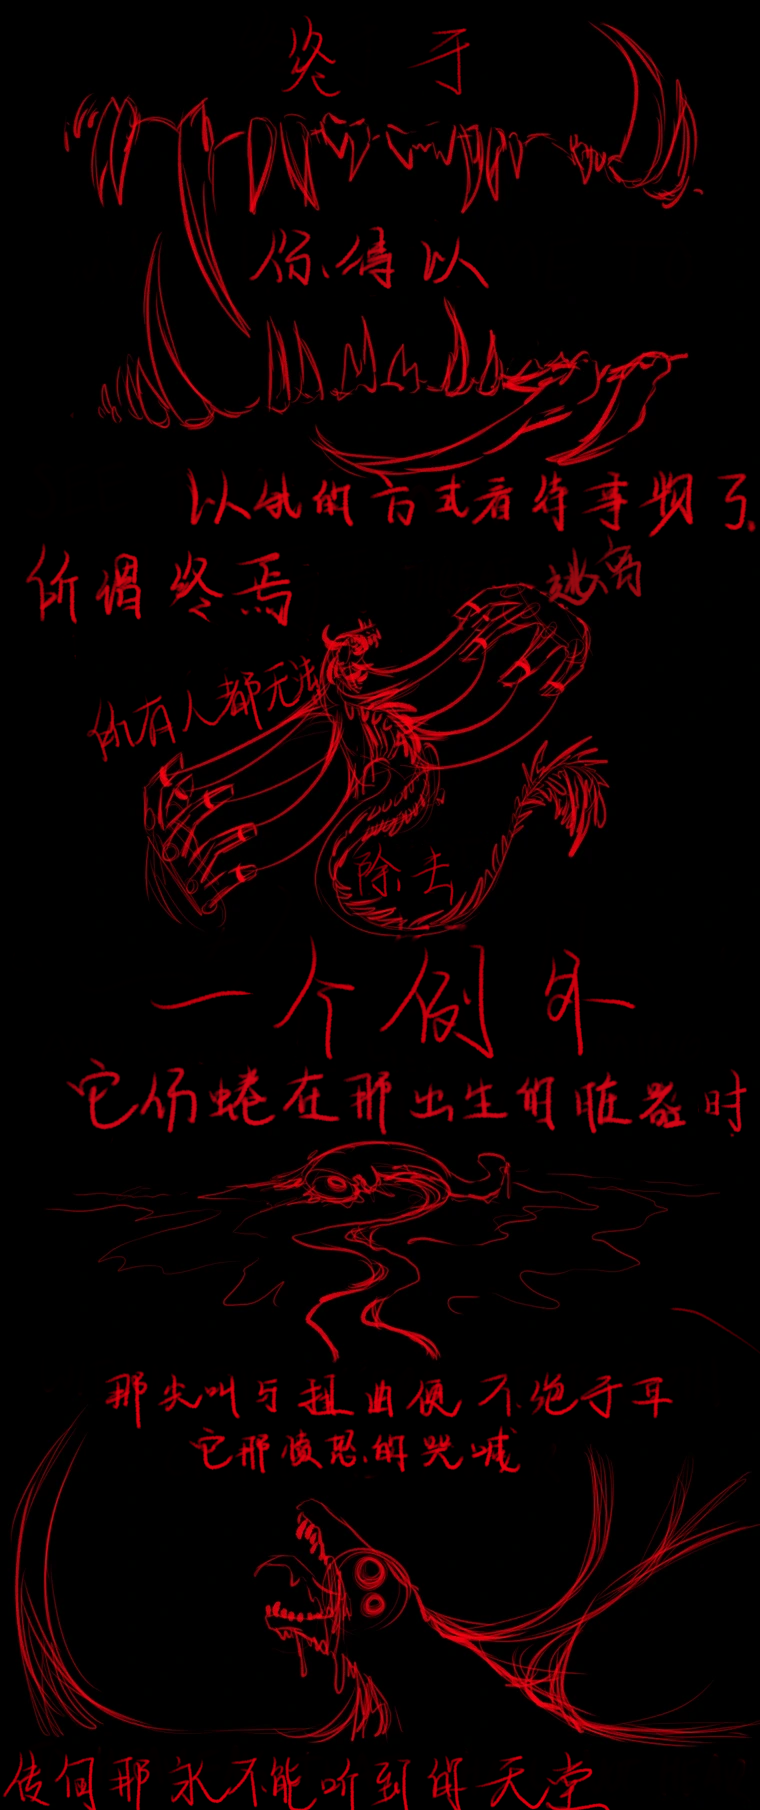 终于
你得以
以他的方式看待事物了
所谓终焉
所有人都无法
逃离
除去
一个例外
它仍蜷在那出生的脏器时
那尖叫与扭曲便不绝于耳
它那愤怒的哭喊
传向那永不能听到的天堂